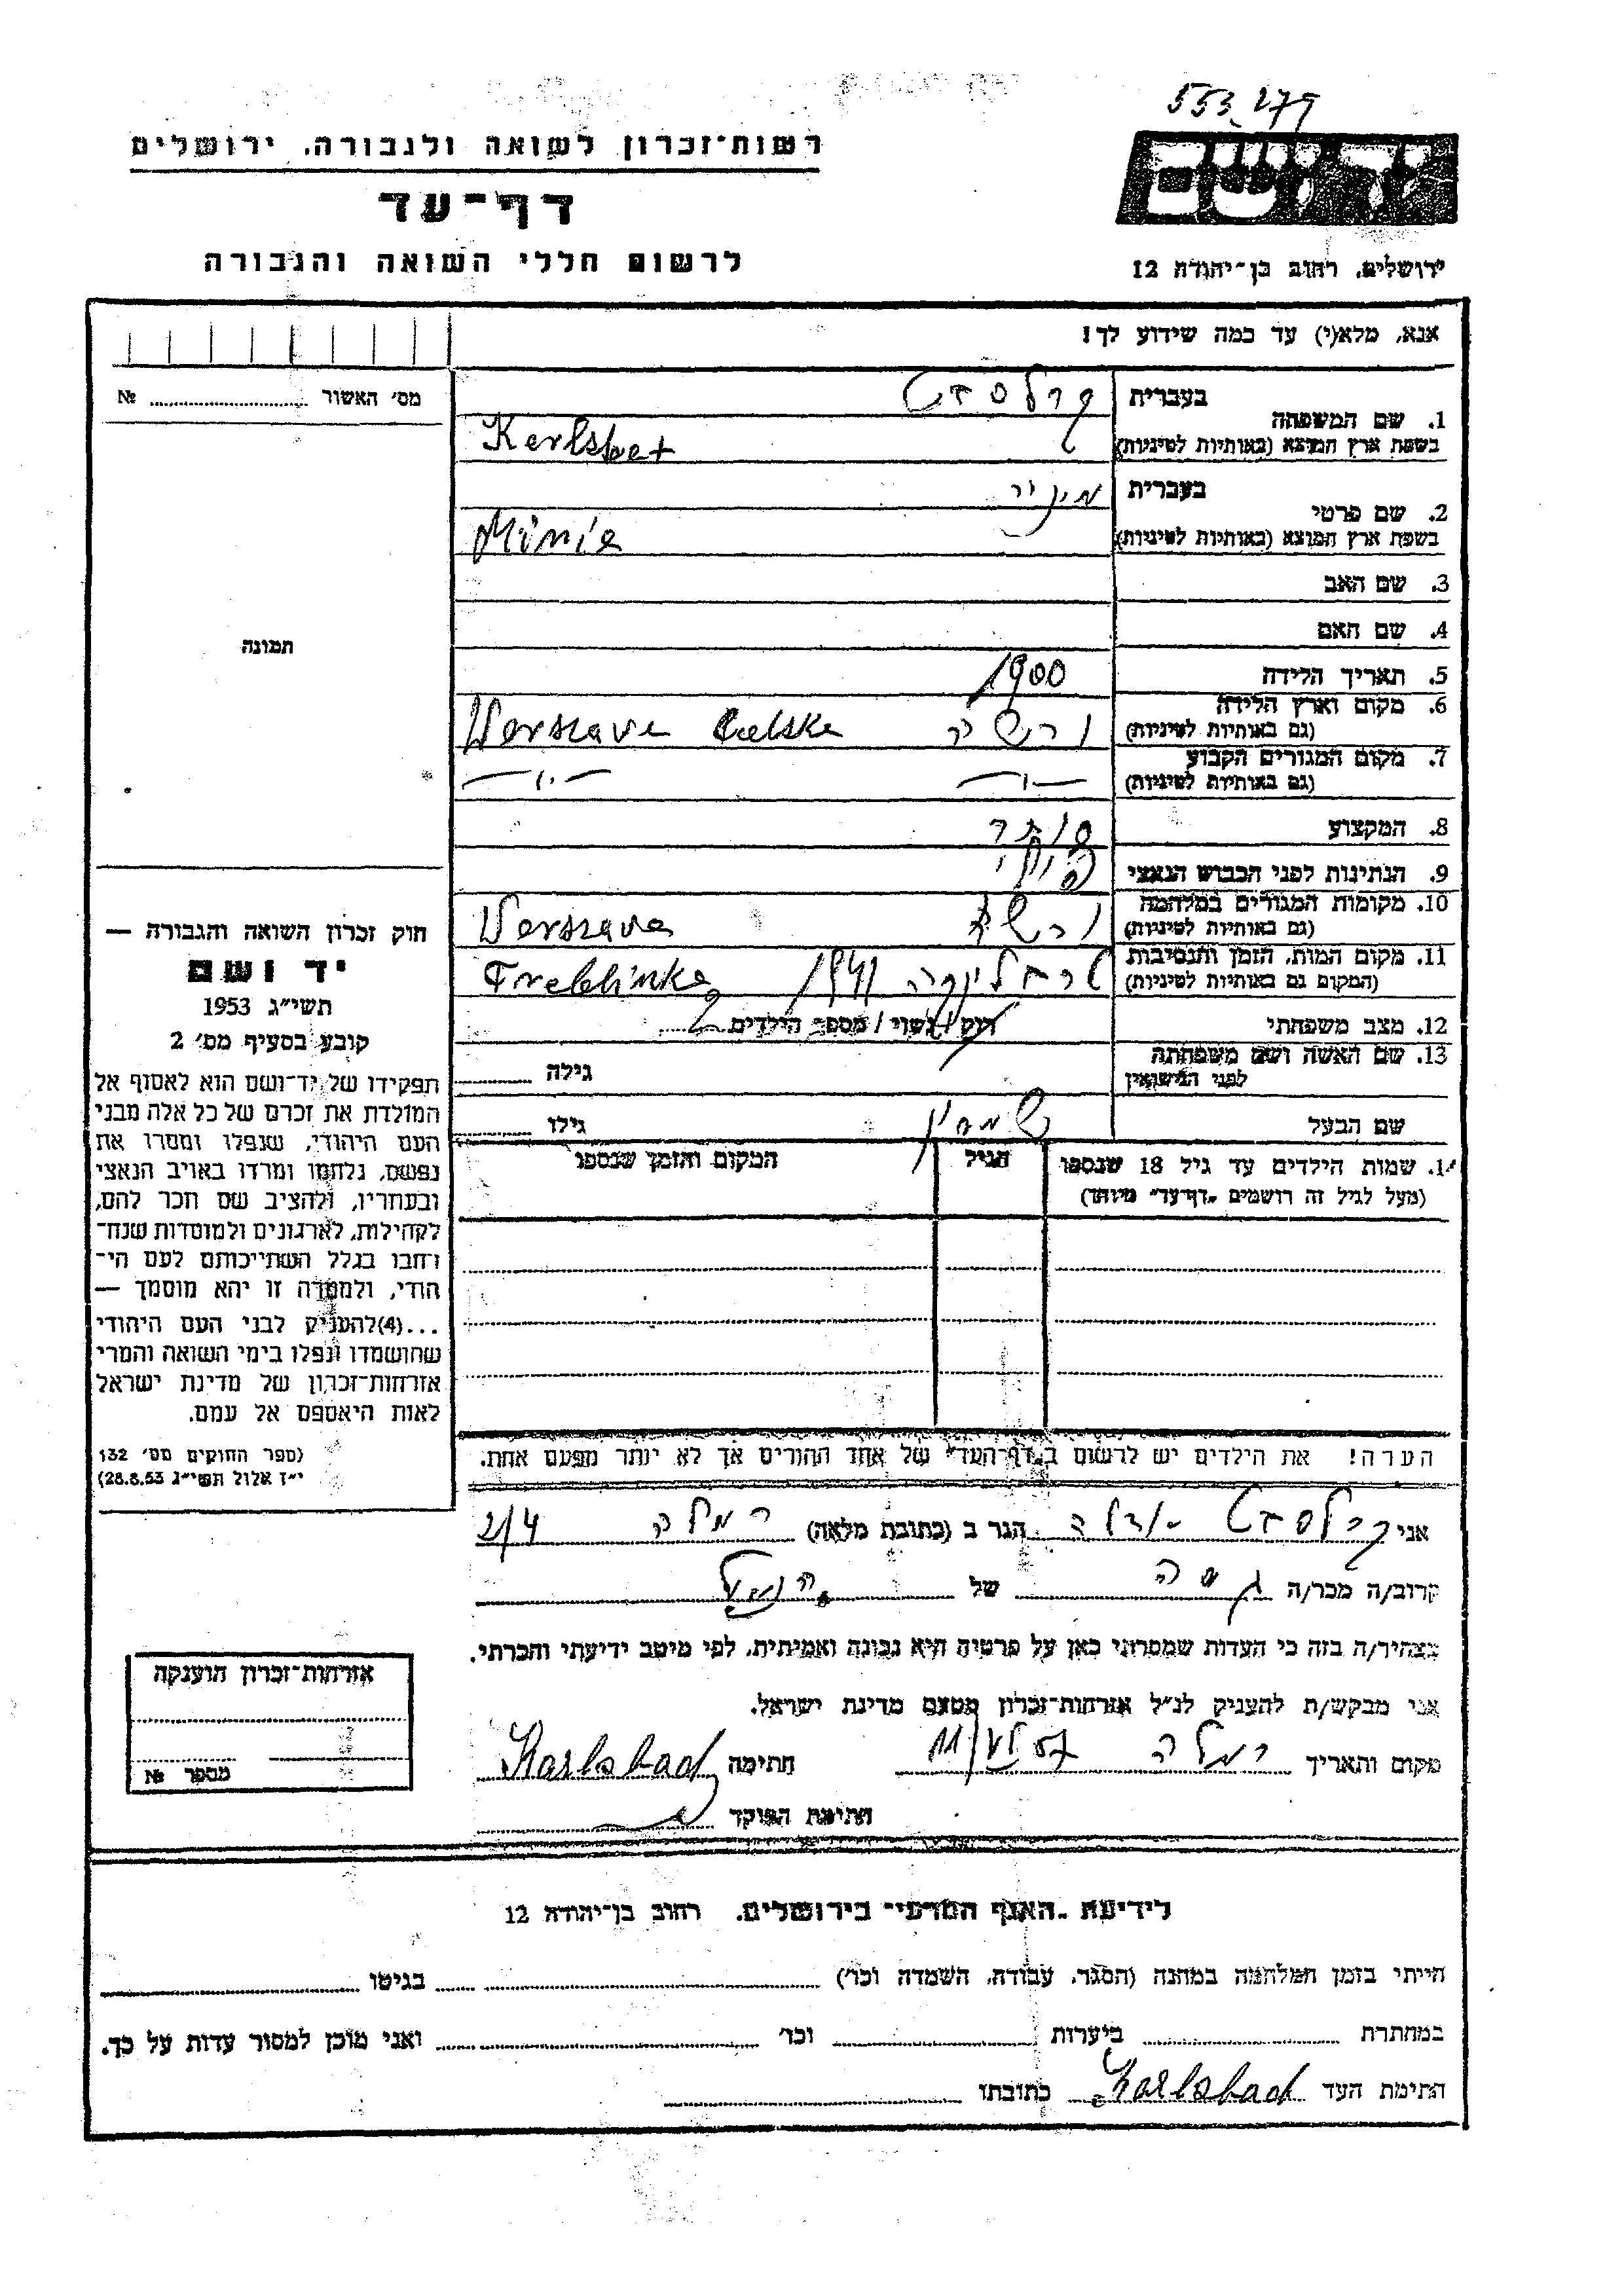 553279
רשות־זכרון לשואה ולגבורה, ירושלים
יד ושם
דף־עד
לרשום חללי השואה והגבורה
ירושלים, רחוב בן־יהודה 12
אנא, מלא(י) עד כמה שידוע לך!
מס' האשור №
בעברית
1. שם המשפחה
בשפת ארץ המוצא (באותיות לטיניות) Karlsbat
בעברית
2. שם פרטי
בשפת ארץ המוצא (באותיות לטיניות) Minia
3. שם האב
4. שם האם
תמונה
5. תאריך הלידה 1900
6. מקום וארץ הלידה
(גם באותיות לטיניות) ורשה Warszawa
7. מקום המגורים הקבוע
(גם באותיות לטיניות) — " — — " —
8. המקצוע סוחר
9. הנתינות לפני הכבוש הנאצי
10. מקומות המגורים במלחמה
(גם באותיות לטיניות) ורשה Warszava
11. מקום המות, הזמן והנסיבות
(המקום גם באותיות לטיניות) טרבלינקה 1941 Trebblinka
12. מצב משפחתי רוק / נשוי / מספר הילדים 2
13. שם האשה ושם משפחתה
לפני הנישואין גילה
שם הבעל גילו
14. שמות הילדים עד גיל 18 שנספו
(מעל לגיל זה רושמים "דף־עד" מיוחד)
הגיל
המקום והזמן שנספו
חוק זכרון השואה והגבורה —
יד ושם
תשי"ג 1953
קובע בסעיף מס' 2
תפקידו של יד־ושם הוא לאסוף אל
המולדת את זכרם של כל אלה מבני
העם היהודי, שנפלו ומסרו את
נפשם, נלחמו ומרדו באויב הנאצי
ובעוזריו, ולהציב שם וזכר להם,
לקהילות, לארגונים ולמוסדות שנח־
רבו בגלל השתייכותם לעם הי־
הודי, ולמטרה זו יהא מוסמך —
...(4)להעניק לבני העם היהודי
שהושמדו ונפלו בימי השואה והמרי
אזרחות־זכרון של מדינת ישראל
לאות היאספם אל עמם.
(ספר החוקים מס' 132
י"ז אלול תשי"ג 28.8.53)
הערה! את הילדים יש לרשום ב"דף־העד" של אחד ההורים אך לא יותר מפעם אחת.
אני הגר ב (כתובת מלאה) רמלה 2/4
קרוב/ה מכר/ה גיסה של
מצהיר/ה בזה כי העדות שמסרתי כאן על פרטיה היא נכונה ואמיתית, לפי מיטב ידיעתי והכרתי.
אני מבקש/ת להעניק לנ"ל אזרחות־זכרון מטעם מדינת ישראל.
מקום ותאריך רמלה חתימה Karlsbad
חתימת הפוקד
אזרחות־זכרון הוענקה
מספר №
לידיעת "האגף המדעי" בירושלים, רחוב בן־יהודה 12
הייתי בזמן המלחמה במחנה (הסגר, עבודה, השמדה וכו') בגיטו
במחתרת ביערות וכו' ואני מוכן למסור עדות על כך.
חתימת העד Karlsbad כתובתו